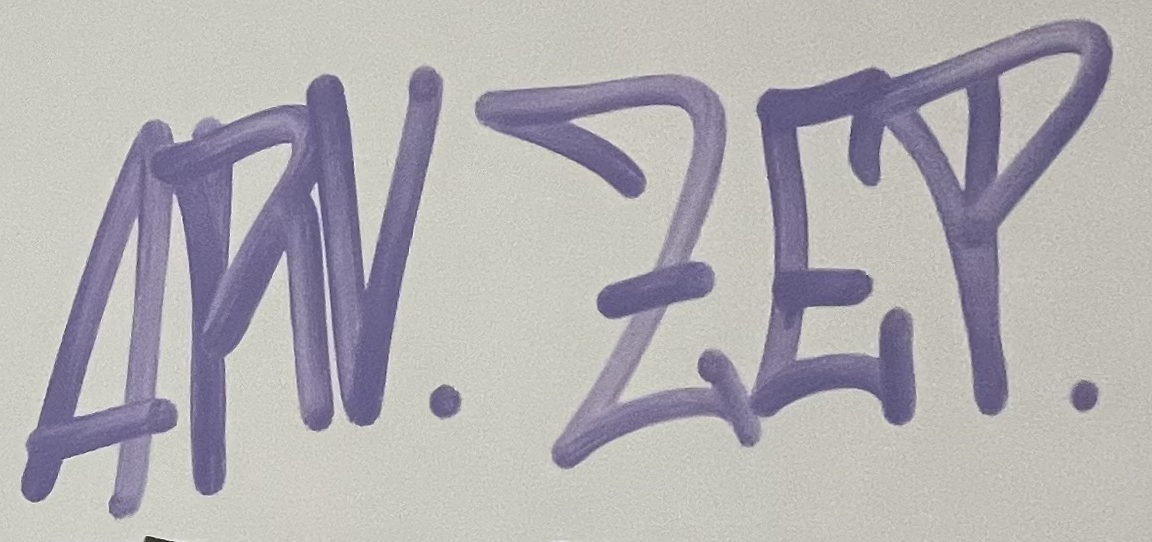 APN. ZEP.